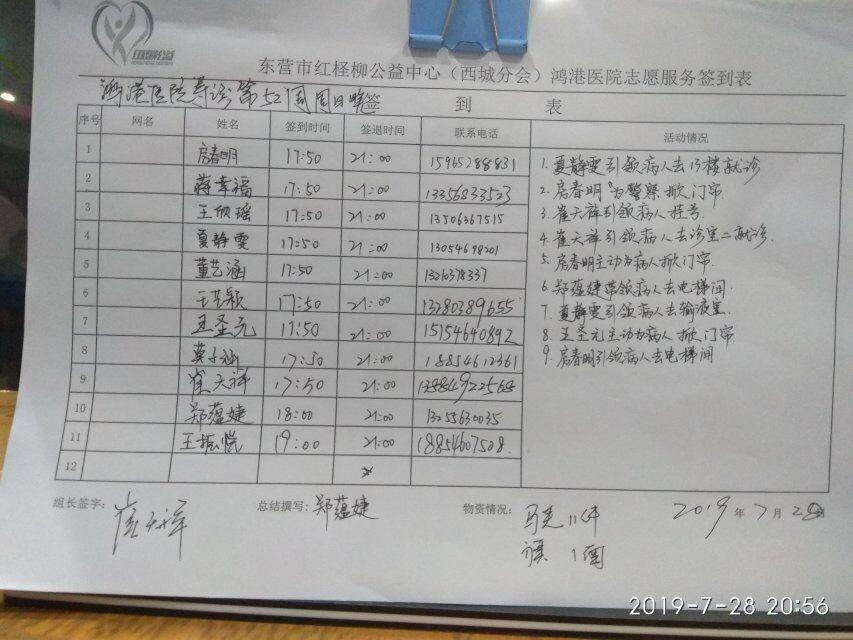 东营市红柽柳公益中心（西城分会）鸿港医院志愿服务签到表
鸿港医院导诊第52周周日晚签 到 表
序号 网名 姓名 签到时间 签退时间 联系电话 活动情况
1 启春明 17:50 21:00 15965288831
2 蒋幸福 17:50 21:00 13356833523
3 王欣瑶 17:50 21:00 13506367515
4 夏静雯 17:50 21:00 13054698201
5 董艺涵 17:50 21:00 13210378337
6 17:50 21:00 13280389655
7 王圣元 17:50 21:00 15154640892
8 17:50 21:00 18854612361
9 崔天祥 17:50 21:00
10 郑蕴婕 18:00 21:00 13255630035
11 王振悦 19:00 21:00 18854607508
12
1. 夏静雯引领病人去15楼就诊
2. 启春明为警察掀门帘
3. 崔天祥引领病人挂号
4. 崔天祥引领病人去诊室二就诊.
5. 启春明主动为病人掀门帘.
6. 郑蕴婕带领病人去电梯间
7. 夏静雯引领病人去输液室
8. 王圣元主动为病人掀门帘
9. 启春明引领病人去电梯间
组长签字: 崔天祥 总结撰写: 郑蕴婕 物资情况: 马克 11件 2019 年 7 月 28 日
旗 1面
2019-7-28 20:56